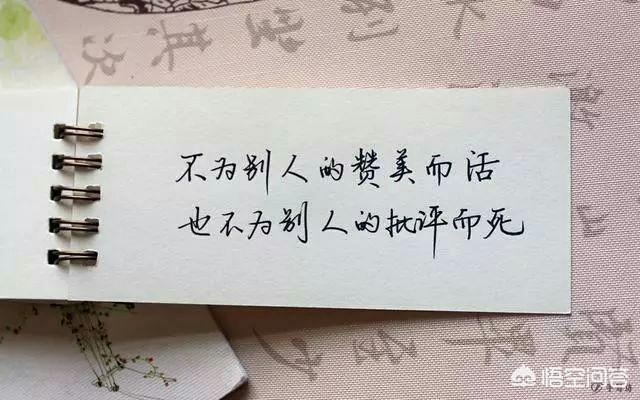 不为别人的赞美而活
也不为别人的批评而死
悟空问答